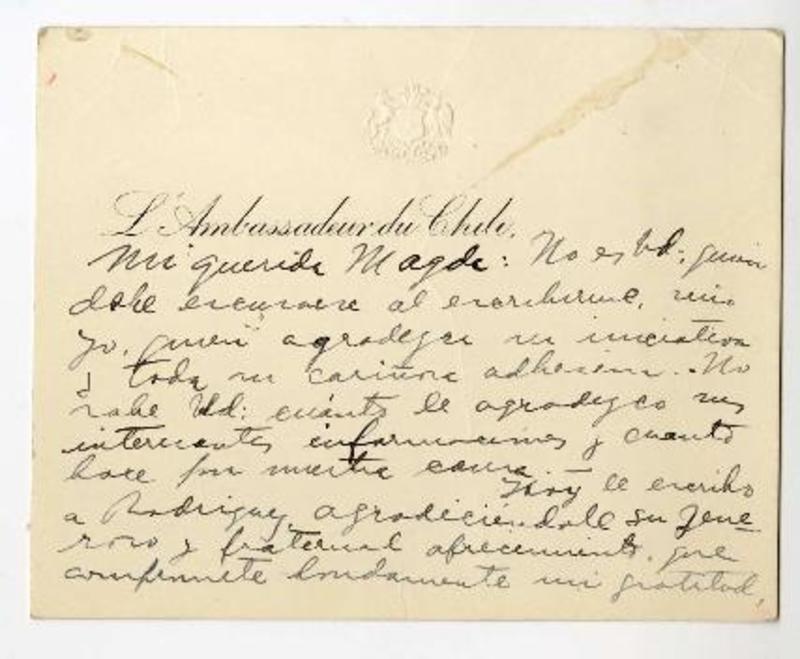 L'Ambassadeur du Chile.
Mi querida Magda: No es Ud: quien
debe excusarse al escribirme, sino
yo, quien agradezca su iniciativa
y toda su cariñosa adhesión. No
sabe Ud: cuánto le agradezco sus
interesantes informaciones y cuanto
hace por nuestra causa. — Hoy le escribo
a Rodriguez agradeciéndole su jene-
roso y fraternal ofrecimiento, que
compromete hondamente mi gratitud,